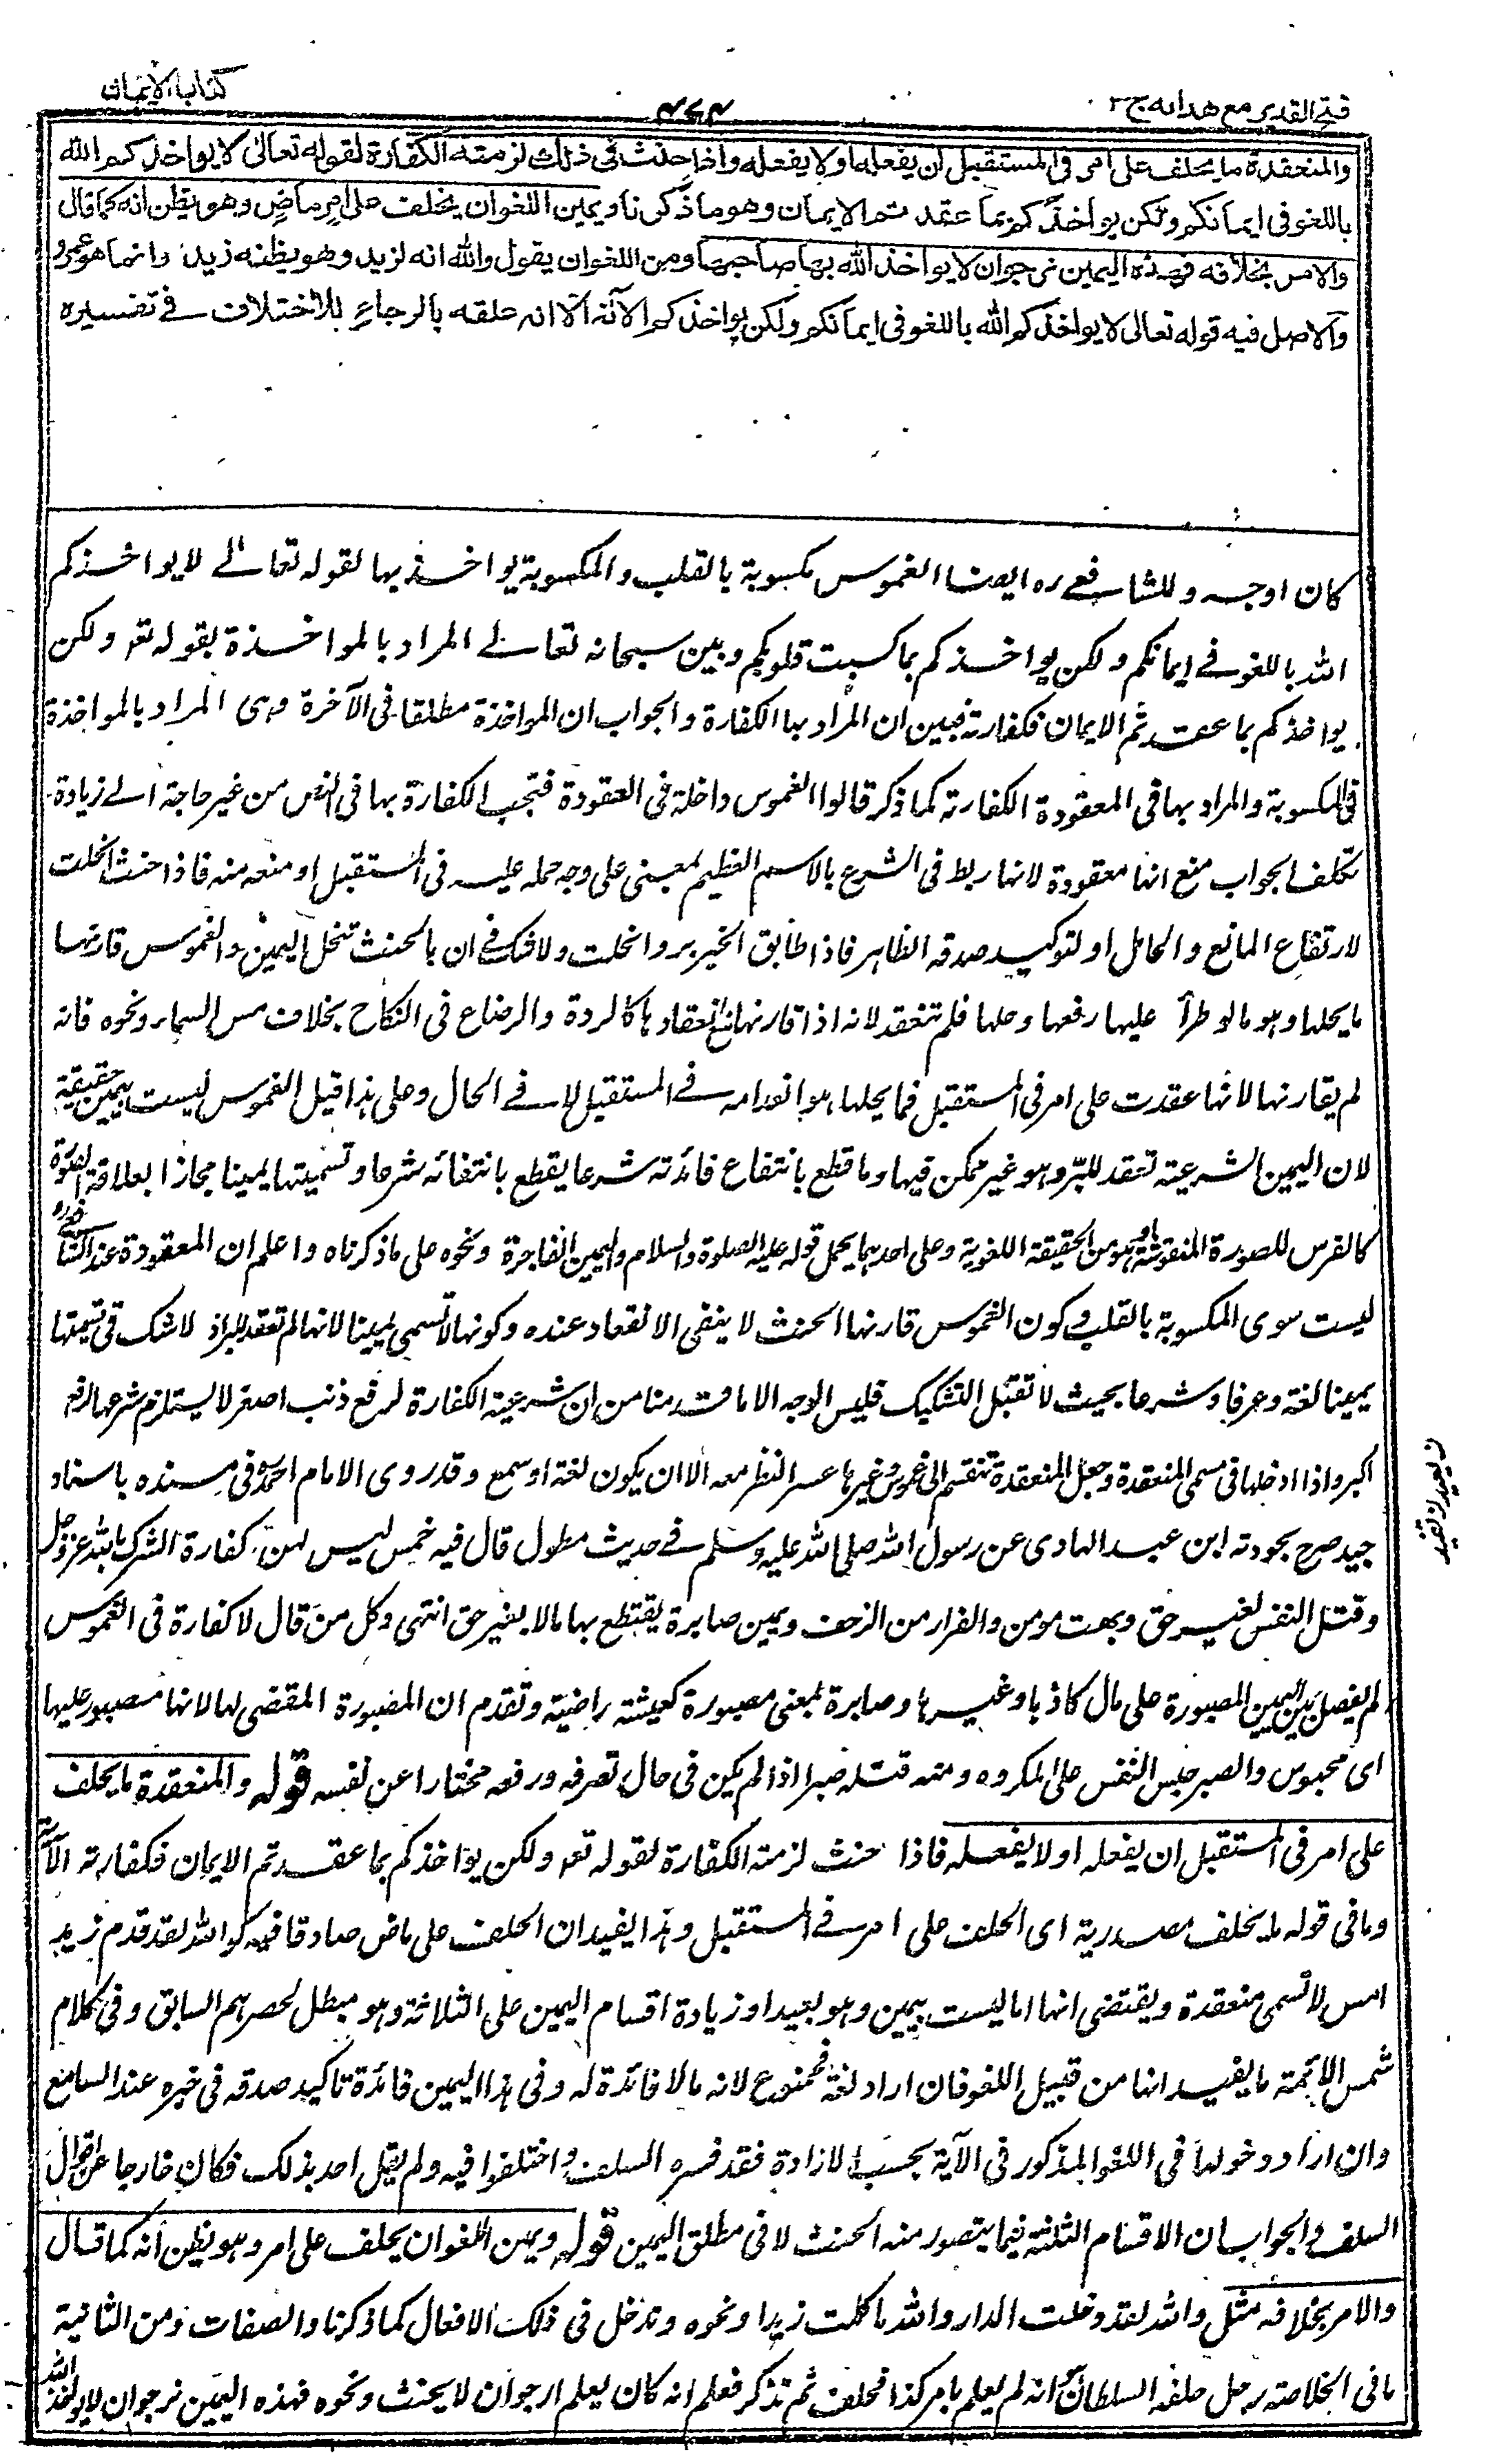 فتح القدير مع هدايه ج ٢
٤٧٤
كتاب الأيمان
والمنعقدة ما يحلف على امر فى المستقبل ان يفعله او لا يفعله واذا حنث فى ذلك لزمته الكفارة لقوله تعالى لا يواخذكم الله
باللغو فى ايمانكم ولكن يواخذكم بما عقدتم الايمان وهو ما ذكرنا ويمين اللغوان يحلف على امر ماضٍ وهو يظن انه كما قال
والامر بخلافه فهذه اليمين نرجوان لا يواخذ الله بها صاحبها ومن اللغوان يقول والله انه لزيد وهو يظنه زيدا وانما هو عمرو
والاصل فيه قوله تعالى لا يواخذكم الله باللغو فى ايمانكم ولكن يواخذكم الآية الا انه علقه بالرجاءِ للاختلاف فى تفسيره
كان اوجه وللشافعے ره ايضا الغموس مكسوبة بالقلب والمكسوبة يواخذ بها لقوله تعالے لا يواخذكم
الله باللغو فے ايمانكم ولكن يواخذكم بما كسبت قلوبكم وبين سبحانه تعالے المراد بالمواخذة بقوله تعہ ولكن
يواخذكم بما عقدتم الايمان فكفارته فبين ان المراد بها الكفارة والجواب ان المواخذة مطلقا فى الآخرة وهى المراد بالمواخذة
فى المكسوبة والمراد بها فى المعقودة الكفارة كما ذكر قالوا الغموس داخلة فى العقودة فتجب الكفارة بها فى النص من غير حاجة الے زيادة
تكلف الجواب منع انها معقودة لانها ربط فى الشرع بالاسم العظيم لمعنى على وجه حمله عليه فى المستقبل او منعه منه فاذا حنث انحلت
لارتفاع المانع والحامل او لتوكيد صدقه الظاهر فاذا طابق الخبر بر وانحلت ولا شك فے ان بالحنث تنحل اليمين والغموس قارنها
ما يحلها وهو ما لو طرأ عليها رفعها وحلها فلم تنعقد لانه اذا قارنها منع انعقادها كالردة والرضاع فى النكاح بخلاف مس السماء ونحوه فانه
لم يقارنها لانها عقدت على امر فى المستقبل فما يحلها هو انعدامه فے المستقبل لا فے الحال وعلى هذا قيل الغموس ليست بيمين حقيقة
لان اليمين الشرعية تعقد للبرّ وهو غير ممكن فيها وما قطع بانتفاع فائدته شرعا يقطع بانتفائه شرعا وتسميتها يمينا مجازا بعلاقة الصورة
كالفرس للصورة المنقوشة او هو من الحقيقة اللغوية وعلى احدهما يحمل قوله عليه الصلوة والسلام واليمين الفاجرة ونحوه على ما ذكرناه واعلم ان المعقودة عند الشافعى ره
ليست سوى المكسوبة بالقلب وكون الغموس قارنها الحنث لا ينفى الانعقاد عنده وكونها لا تسمى يمينا لانها لم تعقد للبر اذ لا شك فى تسميتها
يمينا لغة وعرفا وشرعا بحيث لا تقبل التشكيك فليس الوجه الا ما قدمنا من ان شرعية الكفارة لرفع ذنب اصغر لا يستلزم شرعها لرفع
اكبر واذا ادخلها فى مسمى المنعقدة وجعل المنعقدة تنقسم الى غموس وغيرها عسر النظر معه الا ان يكون لغة او سمع وقد روى الامام احمد ره فى مسنده باسناد
جيد صرح بجودته ابن عبد الهادى عن رسول الله صلى الله عليه وسلم فے حديث مطول قال فيه خمس ليس لهن كفارة الشرك بالله عز وجل
وقتل النفس بغير حق وبهت مومن والفرار من الزحف ويمين صابرة يقتطع بها مالا بغير حق انتهى وكل من قال لا كفارة فى الغموس
لم يفصل بين اليمين المصبورة على مال كاذبا وغيرها وصابرة بمعنى مصبورة كعيشة راضية وتقدم ان المصبورة المقضى لها لانها مصبور عليها
اى محبوس والصبر حبس النفس على المكروه ومنه قتله صبرا اذا لم يكن فى حال تصرفه ورفعه مختارا عن نفسه قوله والمنعقدة ما يحلف
على امر فى المستقبل ان يفعله او لا يفعله فاذا حنث لزمته الكفارة لقوله تعہ ولكن يواخذكم بما عقدتم الايمان فكفارته الآية
وما فى قوله ما يحلف مصدرية اى الحلف على امر فے المستقبل وهذا يفيد ان الحلف على ماض صادقا فيه كو الله لقد قدم زيد
امس لا تسمى منعقدة ويقتضى انها اما ليست بيمين وهو بعيد او زيادة اقسام اليمين على الثلاثة وهو مبطل لحصرهم السابق وفى كلام
شمس الائمة ما يفيد انها من قبيل اللغو فان اراد لغة فممنوع لانه ما لا فائدة له وفى هذا اليمين فائدة تاكيد صدقه فى خبره عند السامع
وان اراد دخولها فى اللغو المذكور فى الآية بحسب الارادة فقد فسره السلف واختلفوا فيه ولم يقل احد بذلك فكان خارجا عن اقوال
السلف والجواب ان الاقسام الثلثة فيما يتصور منه الحنث لا فى مطلق اليمين قوله ويمين اللغوان يحلف على امر وهو يظن انه كما قال
والامر بخلافه مثل والله لقد دخلت الدار والله ما كلمت زيدا ونحوه وتدخل فى ذلك الافعال كما ذكرنا والصفات ومن الثانية
ما فى الخلاصة رجل حلفه السلطان انه لم يعلم بامر كذا فحلف ثم تذكر فعلم انه كان يعلم ارجوان لا يحنث ونحوه فهذه اليمين نرجوان لا يواخذ الله